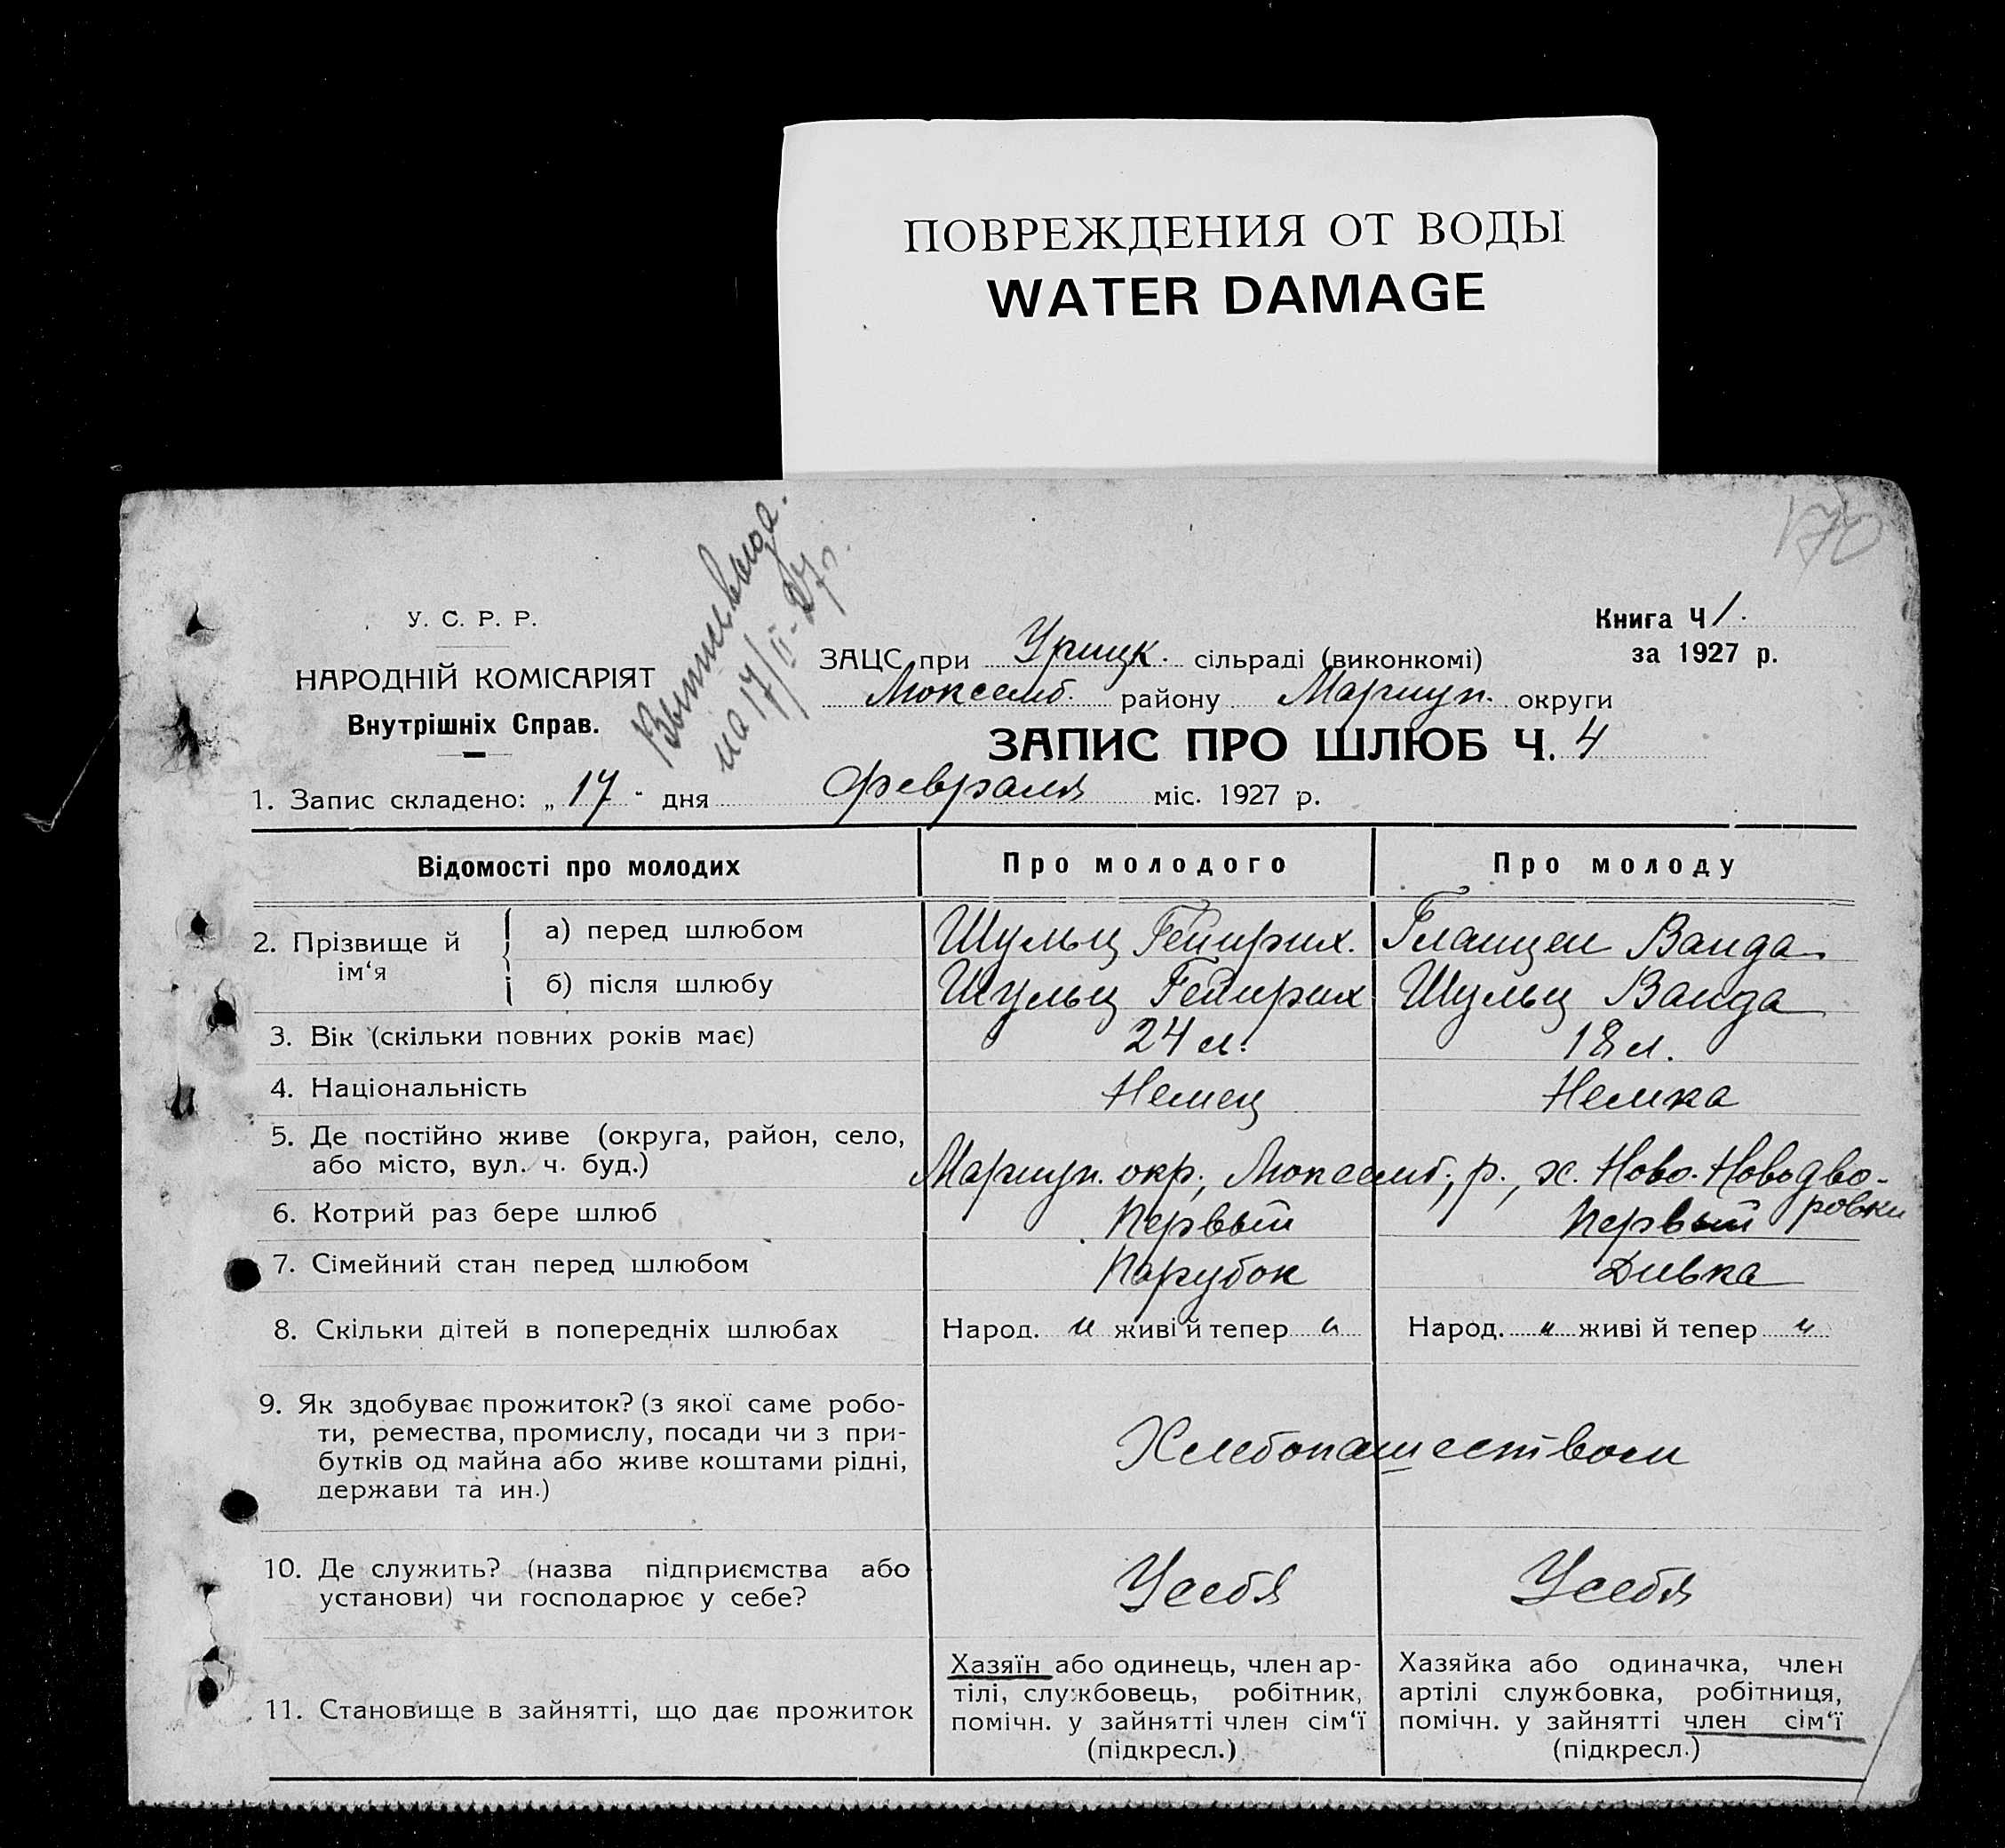 ПОВРЕЖДЕНИЯ ОТ ВОДЫ
WATER DAMAGE
170
на 17/II-27 г.
У. С. Р. Р.
НАРОДНІЙ КОМІСАРІЯТ
Внутрішніх Справ.
Книга Ч 1.
за 1927 р.
ЗАЦС при Урицк. сільраді (виконкомі)
Люксемб. району Мариуп. округи
ЗАПИС ПРО ШЛЮБ Ч. 4
1. Запис складено: „ 17 " дня февраля міс. 1927 р.
Відомості про молодих Про молодого Про молоду
2. Прізвище й ім‘я
а) перед шлюбом Шульц Гейнрих. Гланцен Ванда
б) після шлюбу Шульц Гейнрих Шульц Ванда
3. Вік (скільки повних років має) 24 л. 18 л.
4. Національність Немец Немка
5. Де постійно живе (округа, район, село,
або місто, вул. ч. буд.) Мариуп. окр., Люксемб., р., х. Ново-Новодво-
ровки
6. Котрий раз бере шлюб Первый Первый
7. Сімейний стан перед шлюбом Парубок Дивка
8. Скільки дітей в попередніх шлюбах Народ. " живі й тепер " Народ. " живі й тепер "
9. Як здобуває прожиток? (з якої саме робо-
ти, ремества, промислу, посади чи з при-
бутків од майна або живе коштами рідні,
держави та ин.)
Хлебопашеством
10. Де служить? (назва підприємства або
установи) чи господарює у себе?
Усебя Усебя
11. Становище в зайнятті, що дає прожиток
Хазяїн або одинець, член ар-
тілі, службовець, робітник,
помічн. у зайнятті член сім‘ї
(підкресл.)
Хазяйка або одиначка, член
артілі службовка, робітниця,
помічн. у зайнятті член сім‘ї
(підкресл.)